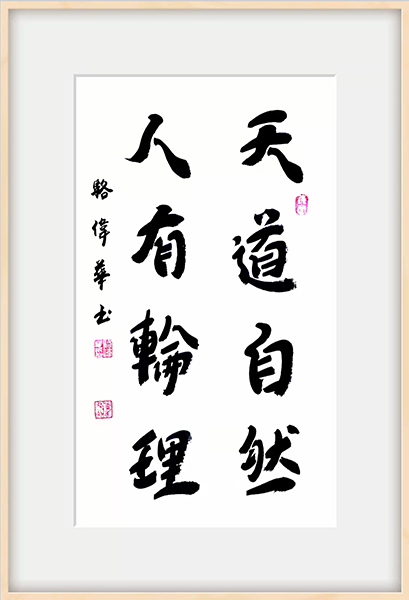 天道自然
人有輪理
駱偉華书